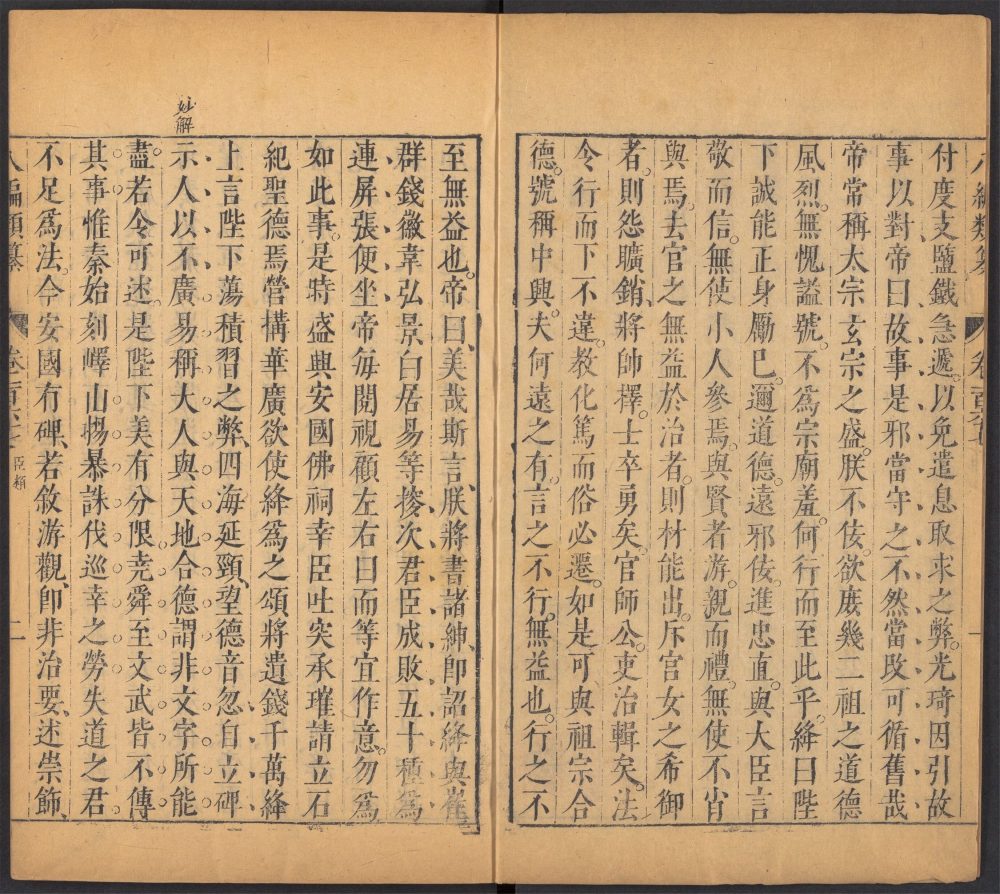 付度支鹽鐵急遞以免遣息取求之弊光琦因引故
事以對帝曰故事是邪當守之不然當改可循舊哉
帝常稱太宗玄宗之盛朕不佞欲庶幾二祖之道德
風烈無愧謚號不爲宗廟羞何行而至此乎絳曰陛
下誠能正身勵己邇道德遠邪佞進忠直與大臣言
敬而信無使小人參焉與賢者游親而禮無使不肖
與焉去官之無益於治者則材能出斥宮女之希御
者則怨曠銷將帥擇士卒勇矣官師公吏治輯矣法
令行而下不違教化篤而俗必遷如是可與祖宗合
德號稱中興夫何遠之有言之不行無益也行之不
至無益也帝曰美哉斯言朕將書諸紳卽詔絳與崔
群錢徽韋弘景白居易等捘次君臣成敗五十種爲
連屏張便坐帝每閱視顧左右曰而等宜作意勿爲
如此事是時盛興安國佛祠幸臣吐突承璀請立石
紀聖德焉營構華廣欲使絳爲之頌將遺錢千萬絳
上言陛下蕩積習之弊四海延頸望德音忽自立碑
妙解
示人以不廣易稱大人與天地合德謂非文字所能
盡若令可述是陛下美有分限堯舜至文武皆不傳
其事惟秦始刻嶧山暢暴誅伐巡幸之勞失道之君
不足爲法今安國有碑若敘游觀卽非治要述崇飾
八編類纂
卷百六十
臣類
二